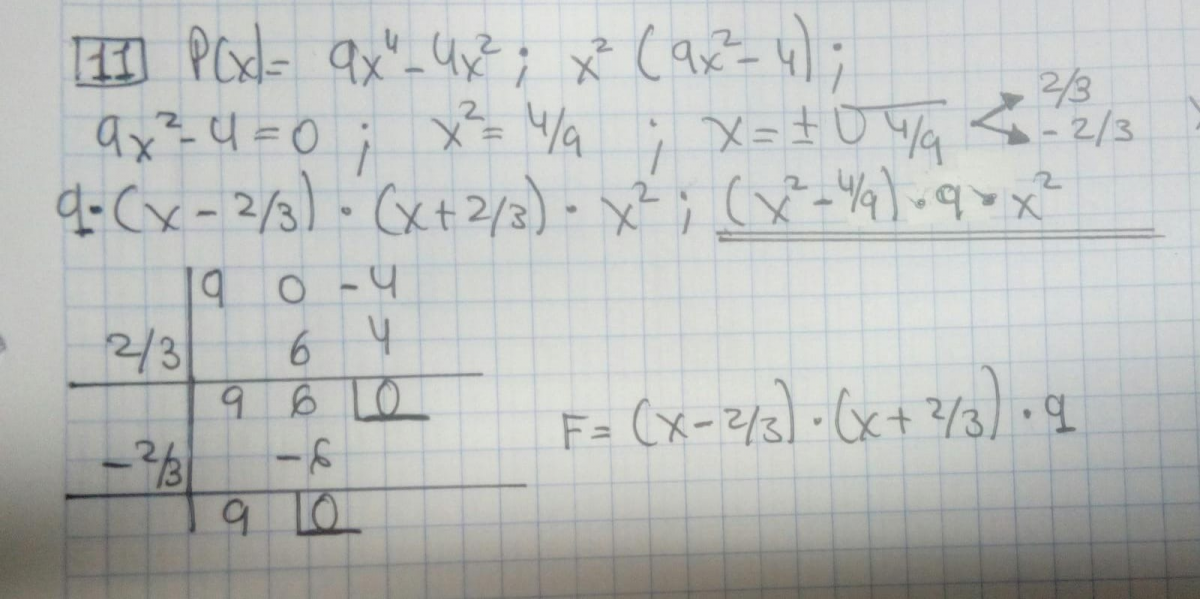 11 P(x)= 9x⁴-4x²; x² (9x²-4);
9x²-4=0; x²=4/9; x=±√4/9 2/3
-2/3
9·(x-2/3)·(x+2/3)·x²; (x²-4/9)·9·x²
9 0 -4
2/3 6 4
9 6 0
-2/3 -6
9 0
F= (x-2/3)·(x+2/3)·9